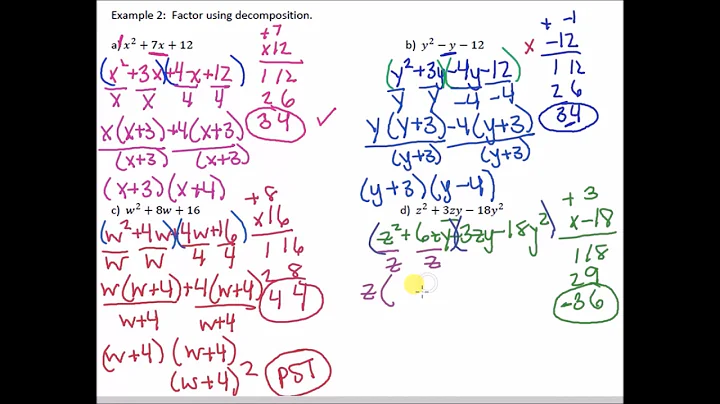 Example 2: Factor using decomposition.
a) x² + 7x + 12
+7
x12
1 12
2 6
3 4
(x²+3x)(+4x+12)
x x 4 4
x(x+3)+4(x+3)
(x+3) (x+3)
(x+3)(x+4)
b) y² − y − 12
+ -1
x -12
1 12
2 6
3 4
(y²+3y)(-4y-12)
y y -4 -4
y(y+3)-4(y+3)
(y+3) (y+3)
(y+3)(y-4)
c) w² + 8w + 16
+8
x16
1 16
2 8
4 4
(w²+4w)(+4w+16)
w w 4 4
w(w+4)+4(w+4)
w+4 w+4
(w+4)(w+4)
(w+4)²
PST
d) z² + 3zy − 18y²
+3
x-18
1 18
2 9
-3 6
(z²+6zy)(-3zy-18y²)
z z
z(